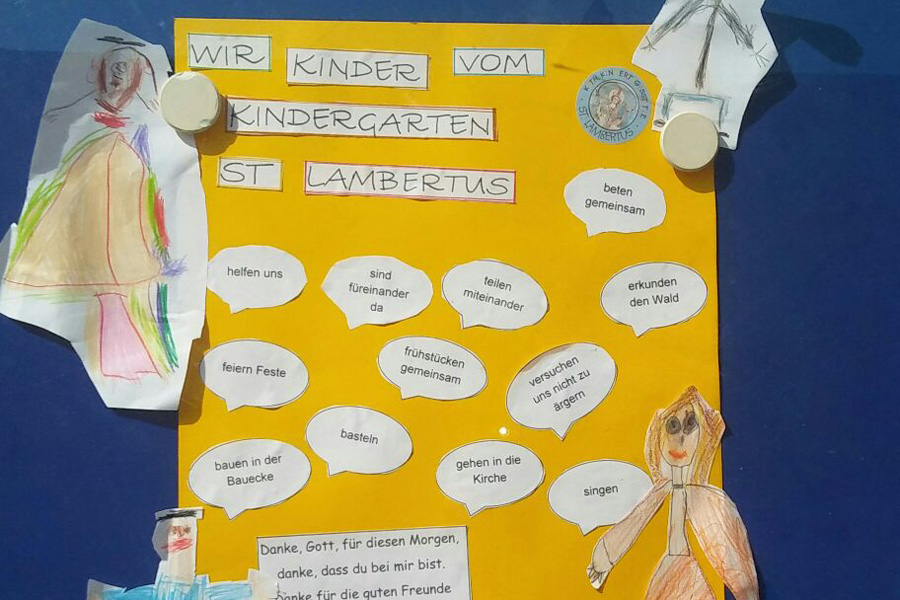 WIR KINDER VOM
KINDERGARTEN
ST LAMBERTUS
ST. LAMBERTUS
beten
gemeinsam
helfen uns
sind
füreinander
da
teilen
miteinander
erkunden
den Wald
feiern Feste
frühstücken
gemeinsam
versuchen
uns nicht zu
ärgern
basteln
bauen in der
Bauecke
gehen in die
Kirche
singen
Danke, Gott, für diesen Morgen,
danke, dass du bei mir bist.
Danke für die guten Freunde